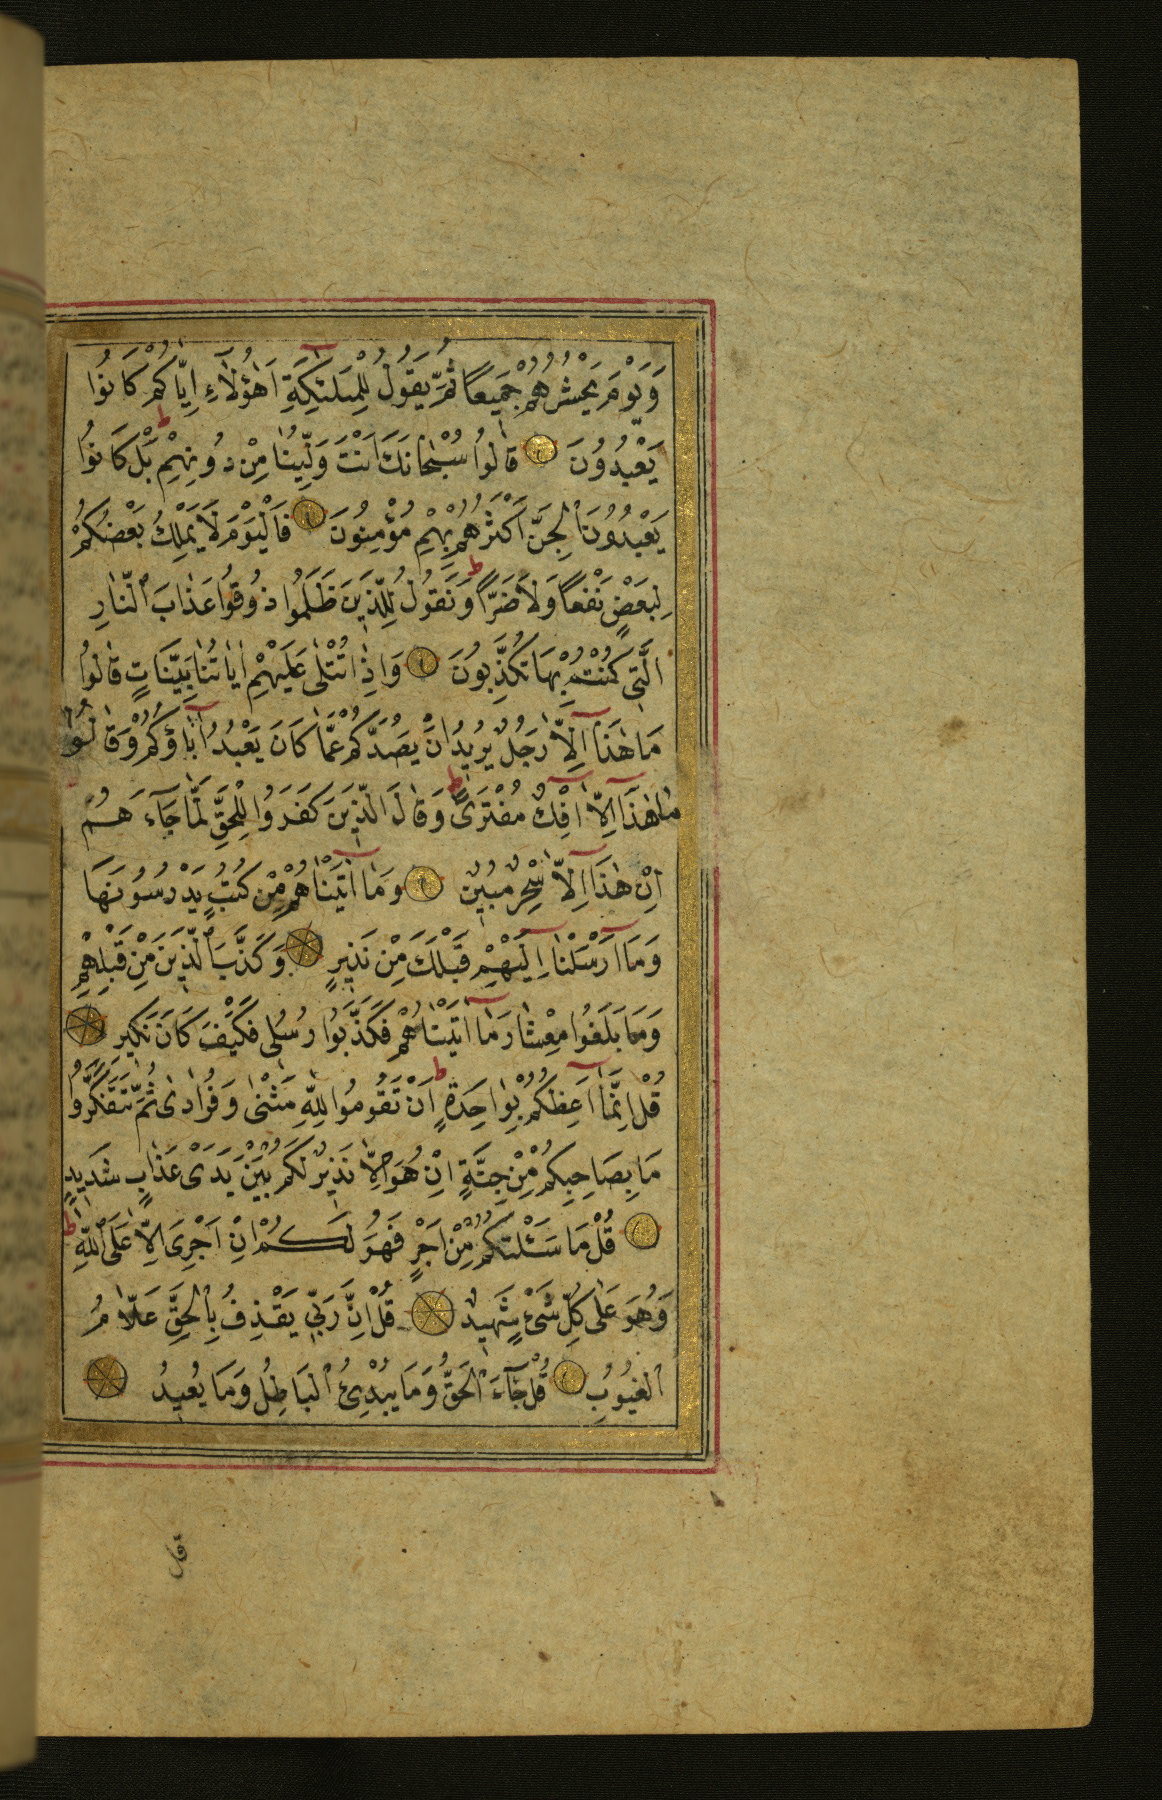 وَيَوْمَ يَحْشُرُهُمْ جَمِيعًا ثُمَّ يَقُولُ لِلْمَلٰئِكَةِ اَهٰؤُلَاءِ اِيَّاكُمْ كَانُوا
يَعْبُدُونَ قَالُوا سُبْحَانَكَ اَنْتَ وَلِيُّنَا مِنْ دُونِهِمْ بَلْ كَانُوا
يَعْبُدُونَ الْجِنَّ اَكْثَرُهُمْ بِهِمْ مُؤْمِنُونَ فَالْيَوْمَ لَا يَمْلِكُ بَعْضُكُمْ
لِبَعْضٍ نَفْعًا وَلَا ضَرًّا وَنَقُولُ لِلَّذِينَ ظَلَمُوا ذُوقُوا عَذَابَ النَّارِ
الَّتِى كُنْتُمْ بِهَا تُكَذِّبُونَ وَاِذَا تُتْلٰى عَلَيْهِمْ اٰيَاتُنَا بَيِّنَاتٍ قَالُوا
مَا هٰذَا اِلَّا رَجُلٌ يُرِيدُ اَنْ يَصُدَّكُمْ عَمَّا كَانَ يَعْبُدُ اٰبَاؤُكُمْ وَقَالُوا
مَا هٰذَا اِلَّا اِفْكٌ مُفْتَرًى وَقَالَ الَّذِينَ كَفَرُوا لِلْحَقِّ لَمَّا جَاءَهُمْ
اِنْ هٰذَا اِلَّا سِحْرٌ مُبِينٌ وَمَا اٰتَيْنَاهُمْ مِنْ كُتُبٍ يَدْرُسُونَهَا
وَمَا اَرْسَلْنَا اِلَيْهِمْ قَبْلَكَ مِنْ نَذِيرٍ وَكَذَّبَ الَّذِينَ مِنْ قَبْلِهِمْ
وَمَا بَلَغُوا مِعْشَارَ مَا اٰتَيْنَاهُمْ فَكَذَّبُوا رُسُلِى فَكَيْفَ كَانَ نَكِيرِ
قُلْ اِنَّمَا اَعِظُكُمْ بِوَاحِدَةٍ اَنْ تَقُومُوا لِلّٰهِ مَثْنٰى وَفُرَادٰى ثُمَّ تَتَفَكَّرُوا
مَا بِصَاحِبِكُمْ مِنْ جِنَّةٍ اِنْ هُوَ اِلَّا نَذِيرٌ لَكُمْ بَيْنَ يَدَىْ عَذَابٍ شَدِيدٍ
قُلْ مَا سَئَلْتُكُمْ مِنْ اَجْرٍ فَهُوَ لَكُمْ اِنْ اَجْرِىَ اِلَّا عَلَى اللّٰهِ
وَهُوَ عَلٰى كُلِّ شَىْءٍ شَهِيدٌ قُلْ اِنَّ رَبِّى يَقْذِفُ بِالْحَقِّ عَلَّامُ
الْغُيُوبِ قُلْ جَاءَ الْحَقُّ وَمَا يُبْدِئُ الْبَاطِلُ وَمَا يُعِيدُ
قل